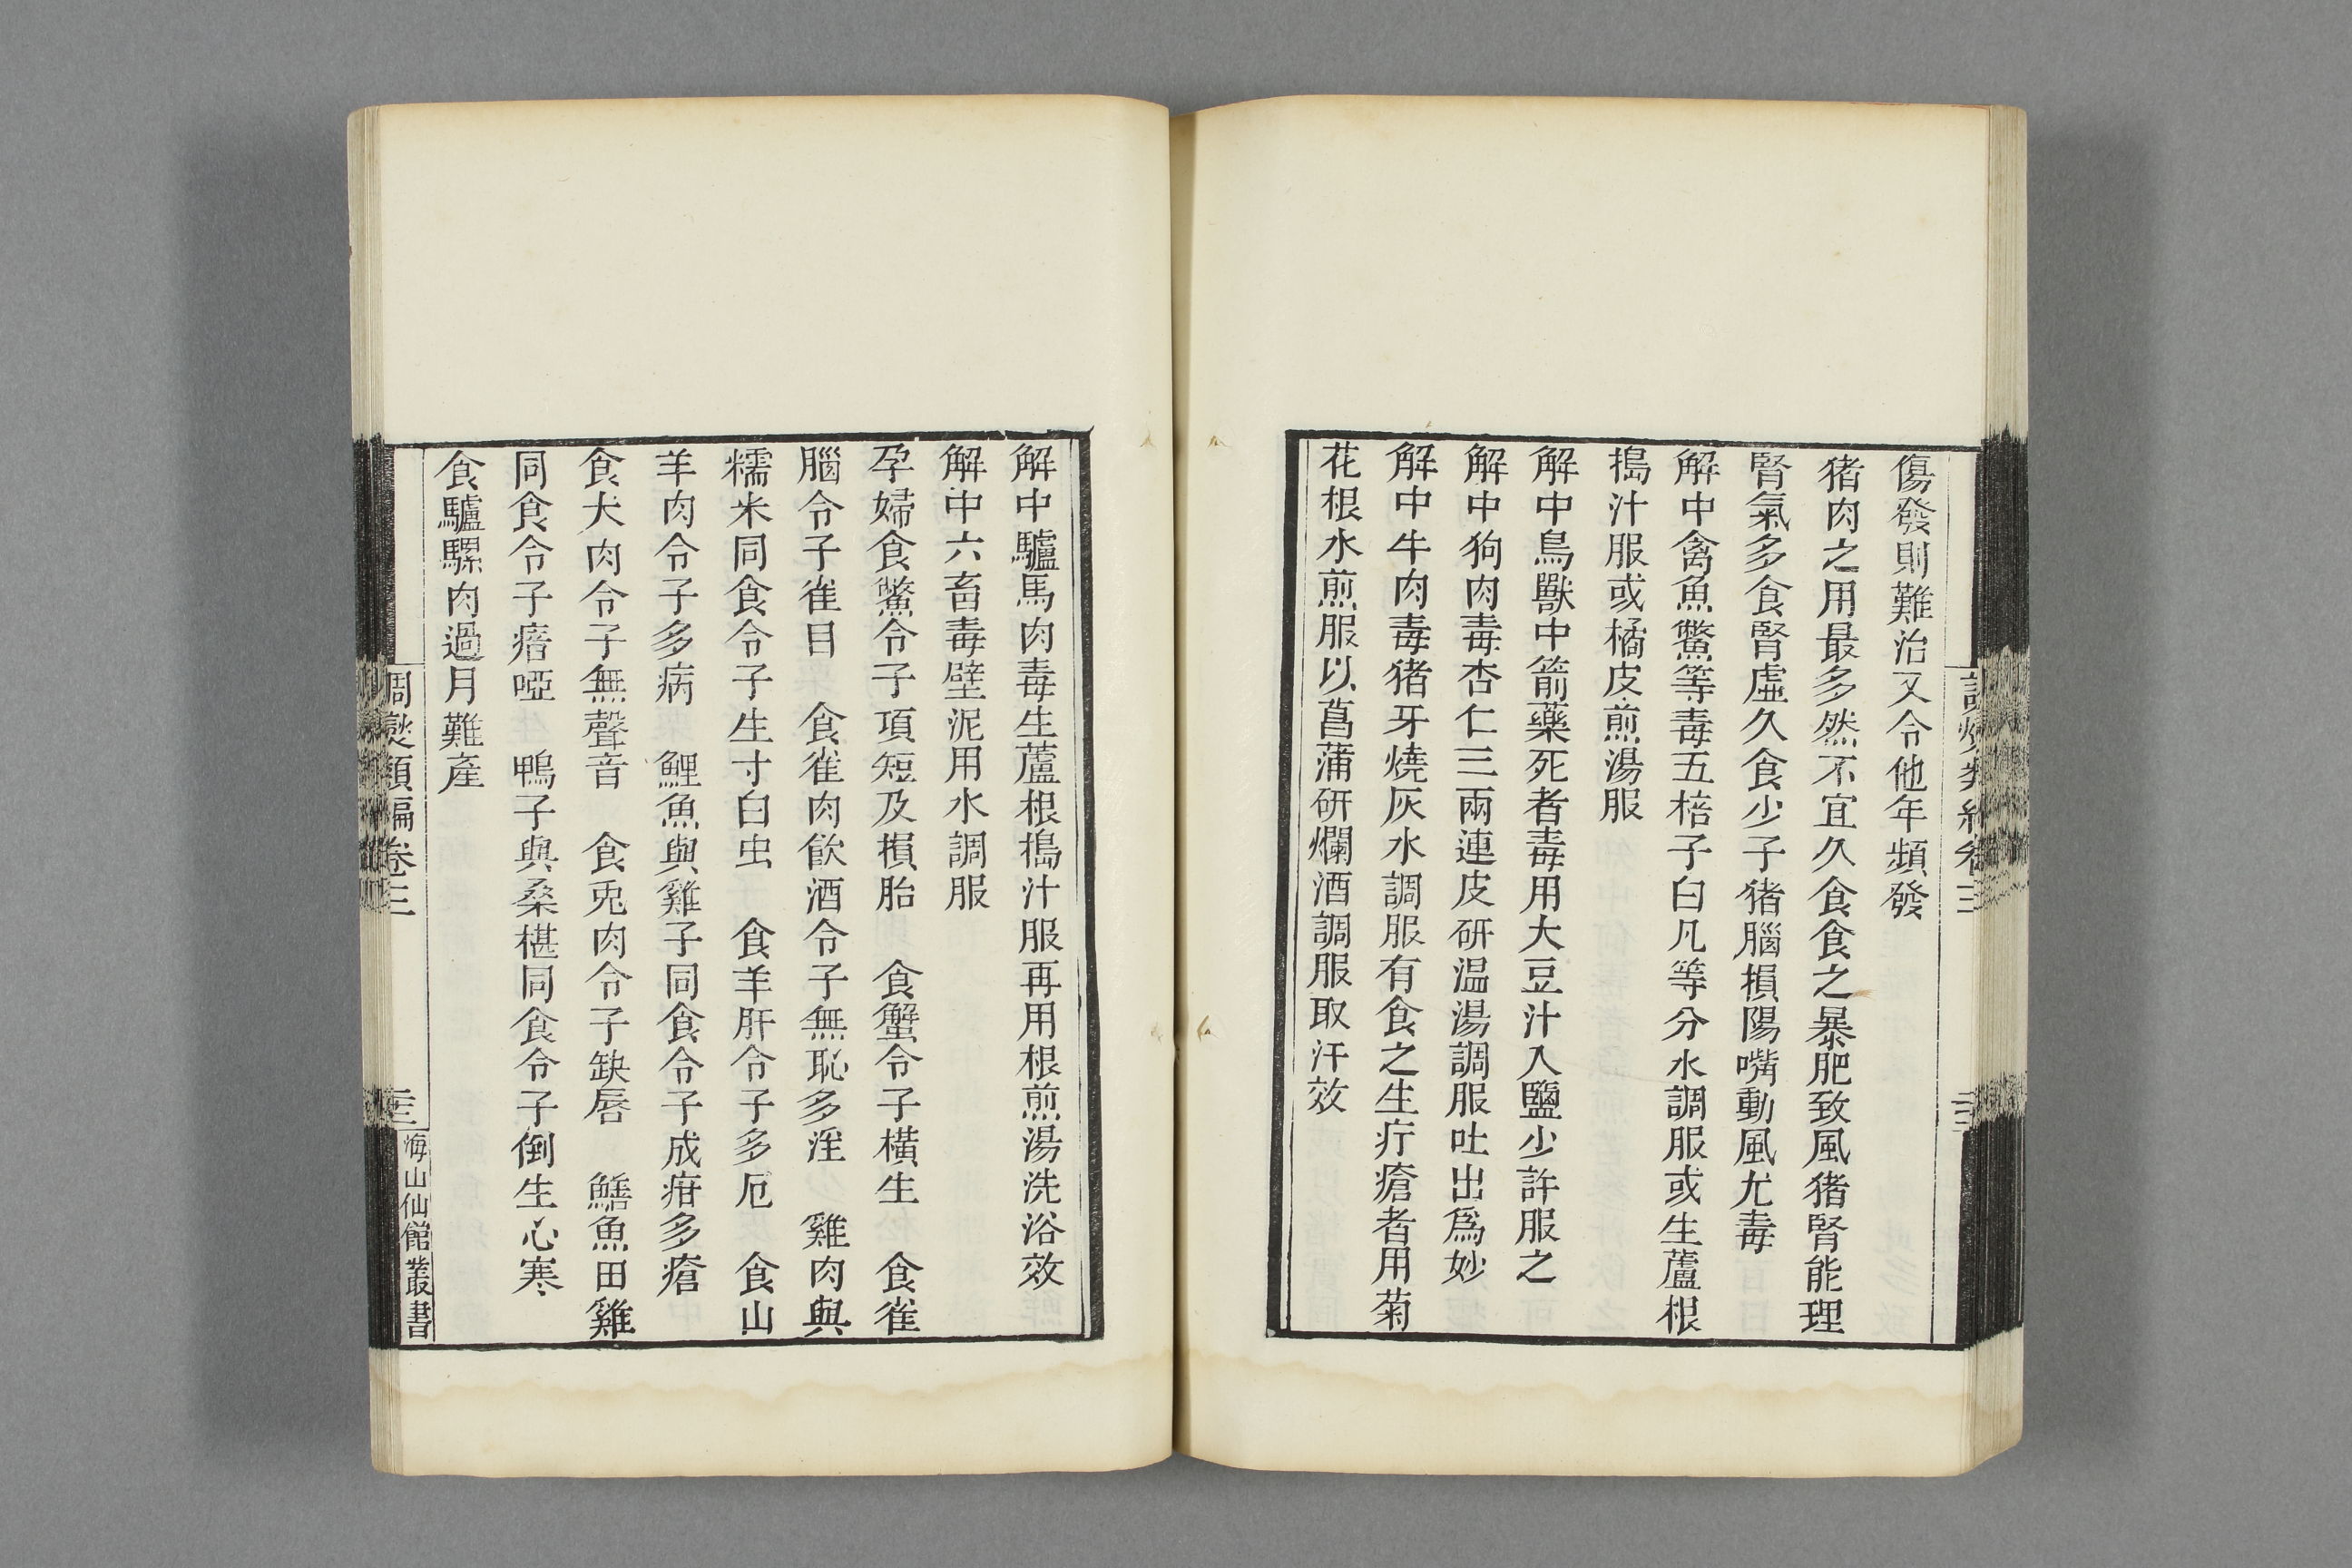 傷發則難治又令他年頻發
猪肉之用最多然不宜久食食之暴肥致風猪腎能理
腎氣多食腎虛久食少子猪腦損陽嘴動風尤毒
解中禽魚鱉等毒五棓子白凡等分水調服或生蘆根
搗汁服或橘皮煎湯服
解中鳥獸中箭藥死者毒用大豆汁入鹽少許服之
解中狗肉毒杏仁三兩連皮研温湯調服吐出爲妙
解中牛肉毒猪牙燒灰水調服有食之生疔瘡者用菊
花根水煎服以菖蒲研爛酒調服取汗效
解中驢馬肉毒生蘆根搗汁服再用根煎湯洗浴效
解中六畜毒壁泥用水調服
孕婦食鱉令子項短及損胎　食蟹令子橫生　食雀
腦令子雀目　食雀肉飲酒令子無恥多淫　雞肉與
糯米同食令子生寸白虫　食羊肝令子多厄　食山
羊肉令子多病　鯉魚與雞子同食令子成疳多瘡
食犬肉令子無聲音　食兎肉令子缺唇　鱔魚田雞
同食令子瘖啞　鴨子與桑椹同食令子倒生心寒
食驢騾肉過月難産
調燮類編卷三
海山仙館叢書